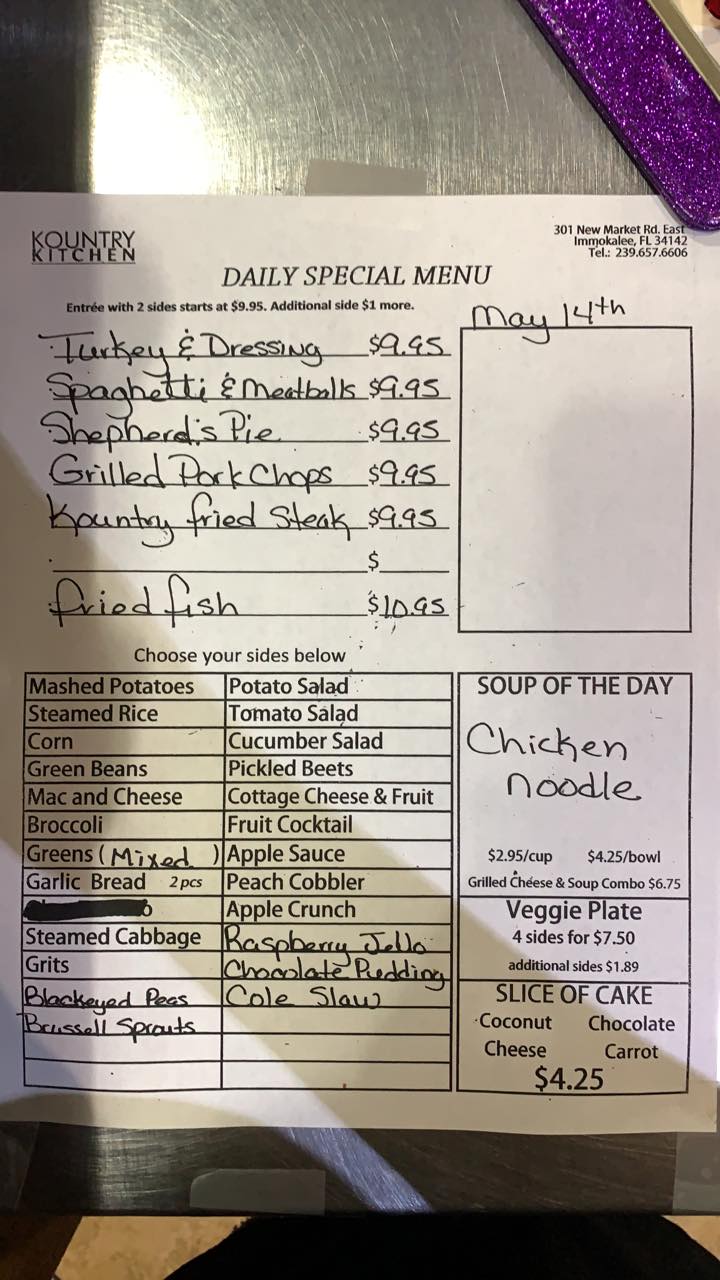 KOUNTRY
KITCHEN
301 New Market Rd. East
Immokalee, FL 34142
Tel.: 239.657.6606
DAILY SPECIAL MENU
Entrée with 2 sides starts at $9.95. Additional side $1 more.
May 14th
Turkey & Dressing $9.95
Spaghetti & Meatballs $9.95
Shepherd's Pie $9.95
Grilled Pork Chops $9.95
Kountry fried Steak $9.95
$
fried fish $10.95
Choose your sides below
Mashed Potatoes
Steamed Rice
Corn
Green Beans
Mac and Cheese
Broccoli
Greens (Mixed)
Garlic Bread 2 pcs
Steamed Cabbage
Grits
Blackeyed Peas
Brussell Sprouts
Potato Salad
Tomato Salad
Cucumber Salad
Pickled Beets
Cottage Cheese & Fruit
Fruit Cocktail
Apple Sauce
Peach Cobbler
Apple Crunch
Raspberry Jello
Chocolate Pudding
Cole Slaw
SOUP OF THE DAY
Chicken
noodle
$2.95/cup $4.25/bowl
Grilled Cheese & Soup Combo $6.75
Veggie Plate
4 sides for $7.50
additional sides $1.89
SLICE OF CAKE
Coconut Chocolate
Cheese Carrot
$4.25